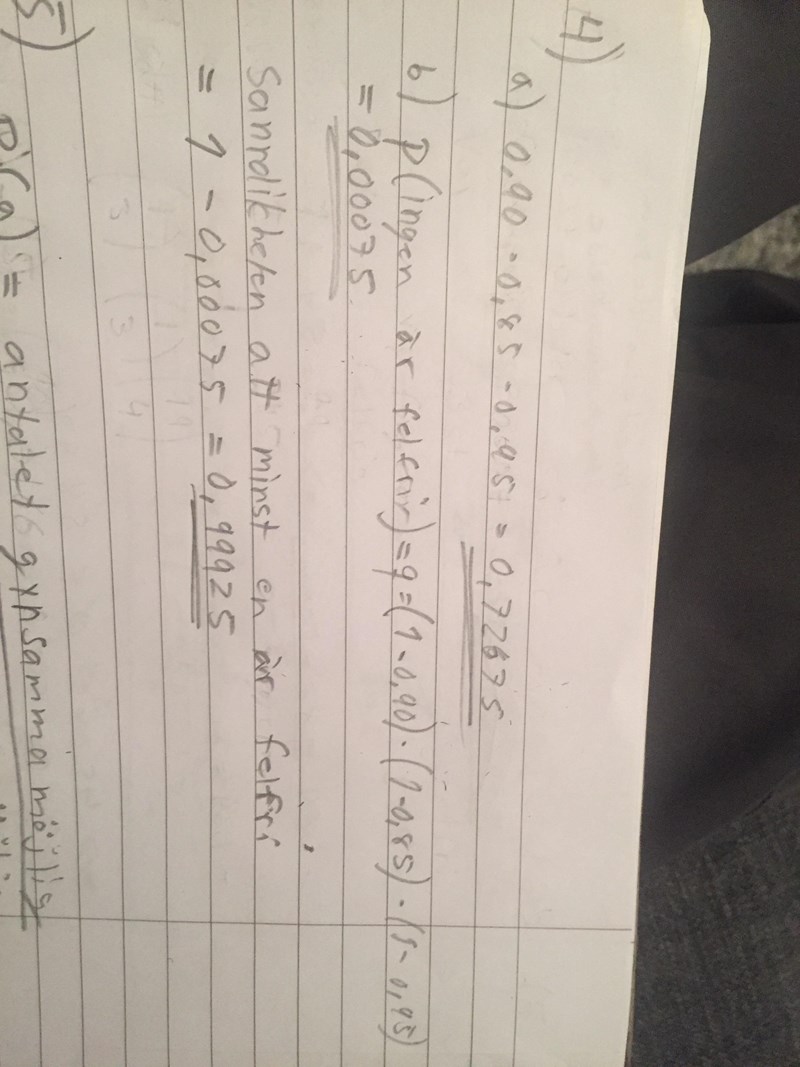 4)
a) 0,90 · 0,85 · 0,95 = 0,72675
b) P(ingen är felfri) = q = (1-0,90) · (1-0,85) · (1-0,95)
= 0,00075
Sannolikheten att minst en är felfri
= 1 - 0,00075 = 0,99925
5)
P(a) = antalet gynsamma möjlig